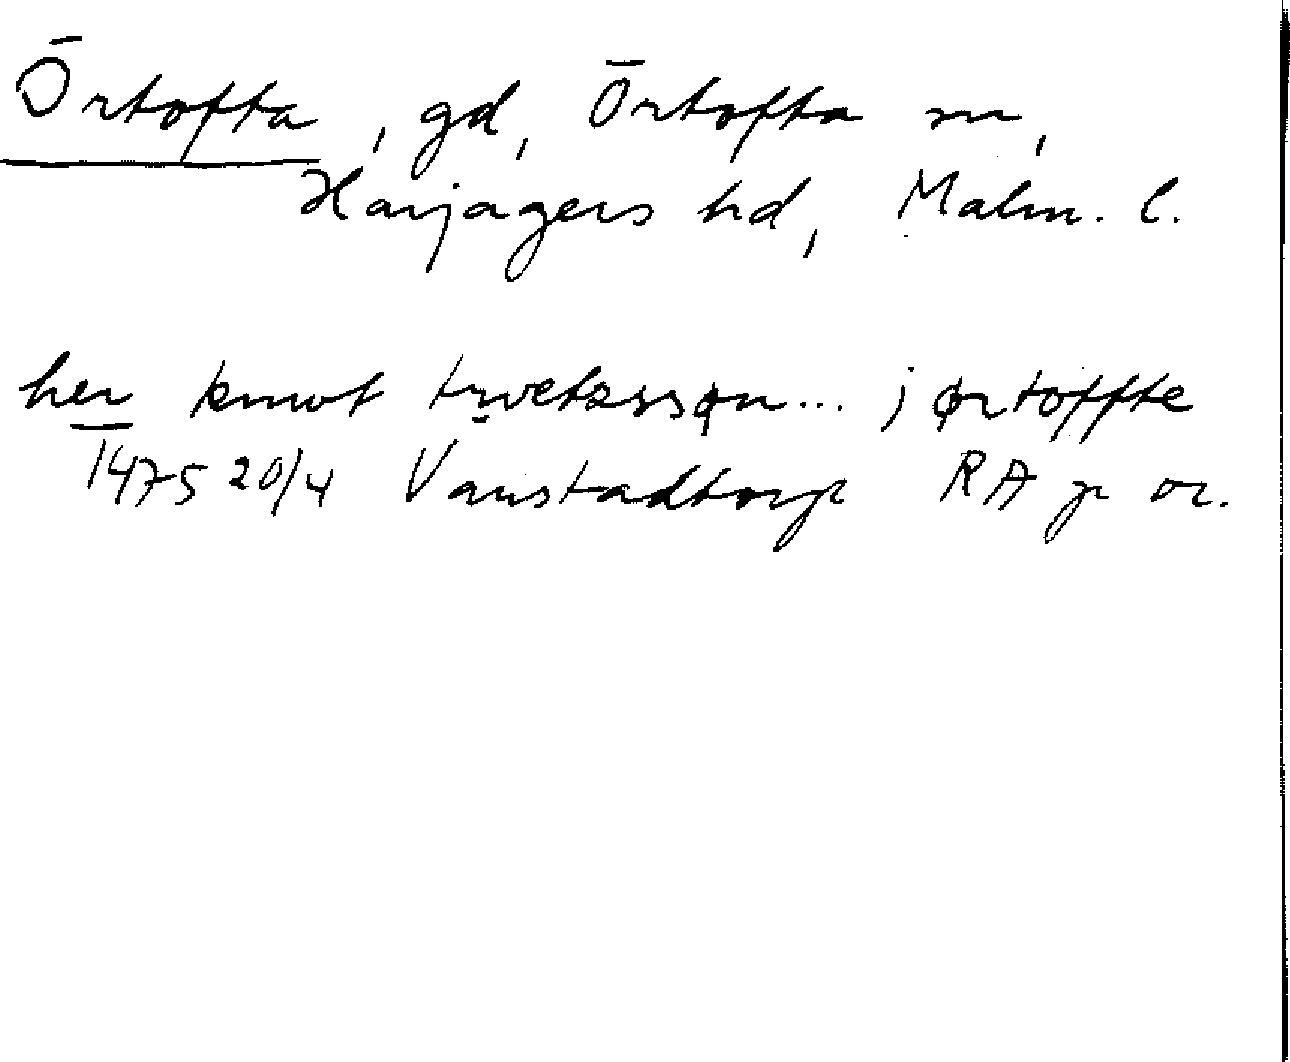 Örtofta, gd, Örtofta sn,
Harjagers hd, Malm. l.
her knwt trwetzssøn... j ørtoffte
1475 20/4 Vanstadtorp RA p or.